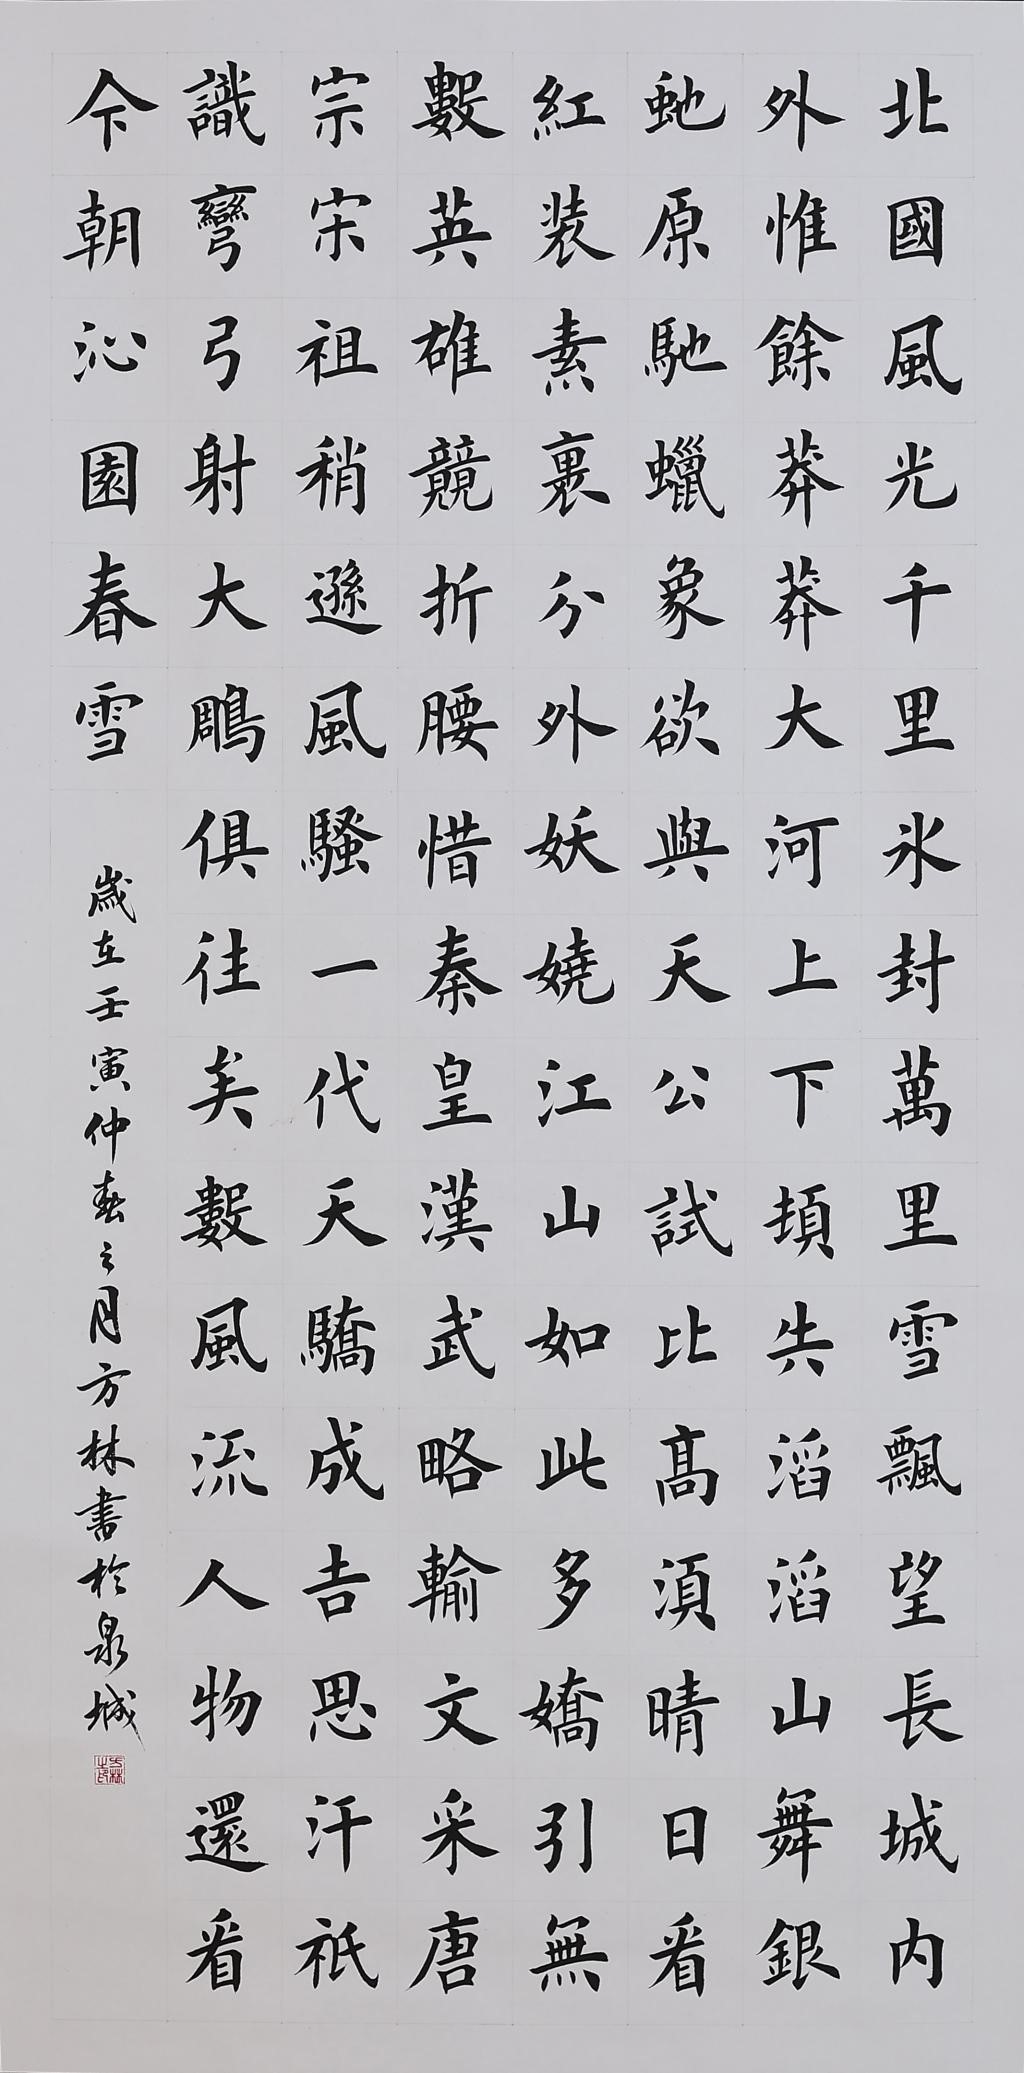 北國風光千里氷封萬里雪飄望長城内
外惟餘莽莽大河上下頓失滔滔山舞銀
虵原馳蠟象欲與天公試比髙須晴日看
紅装素裹分外妖嬈江山如此多嬌引無
數英雄競折腰惜秦皇漢武略輸文采唐
宗宋祖稍遜風騷一代天驕成吉思汗祇
識彎弓射大鵰俱往矣數風流人物還看
今朝沁園春雪
歲在壬寅仲春之月方林書於泉城
方林之印